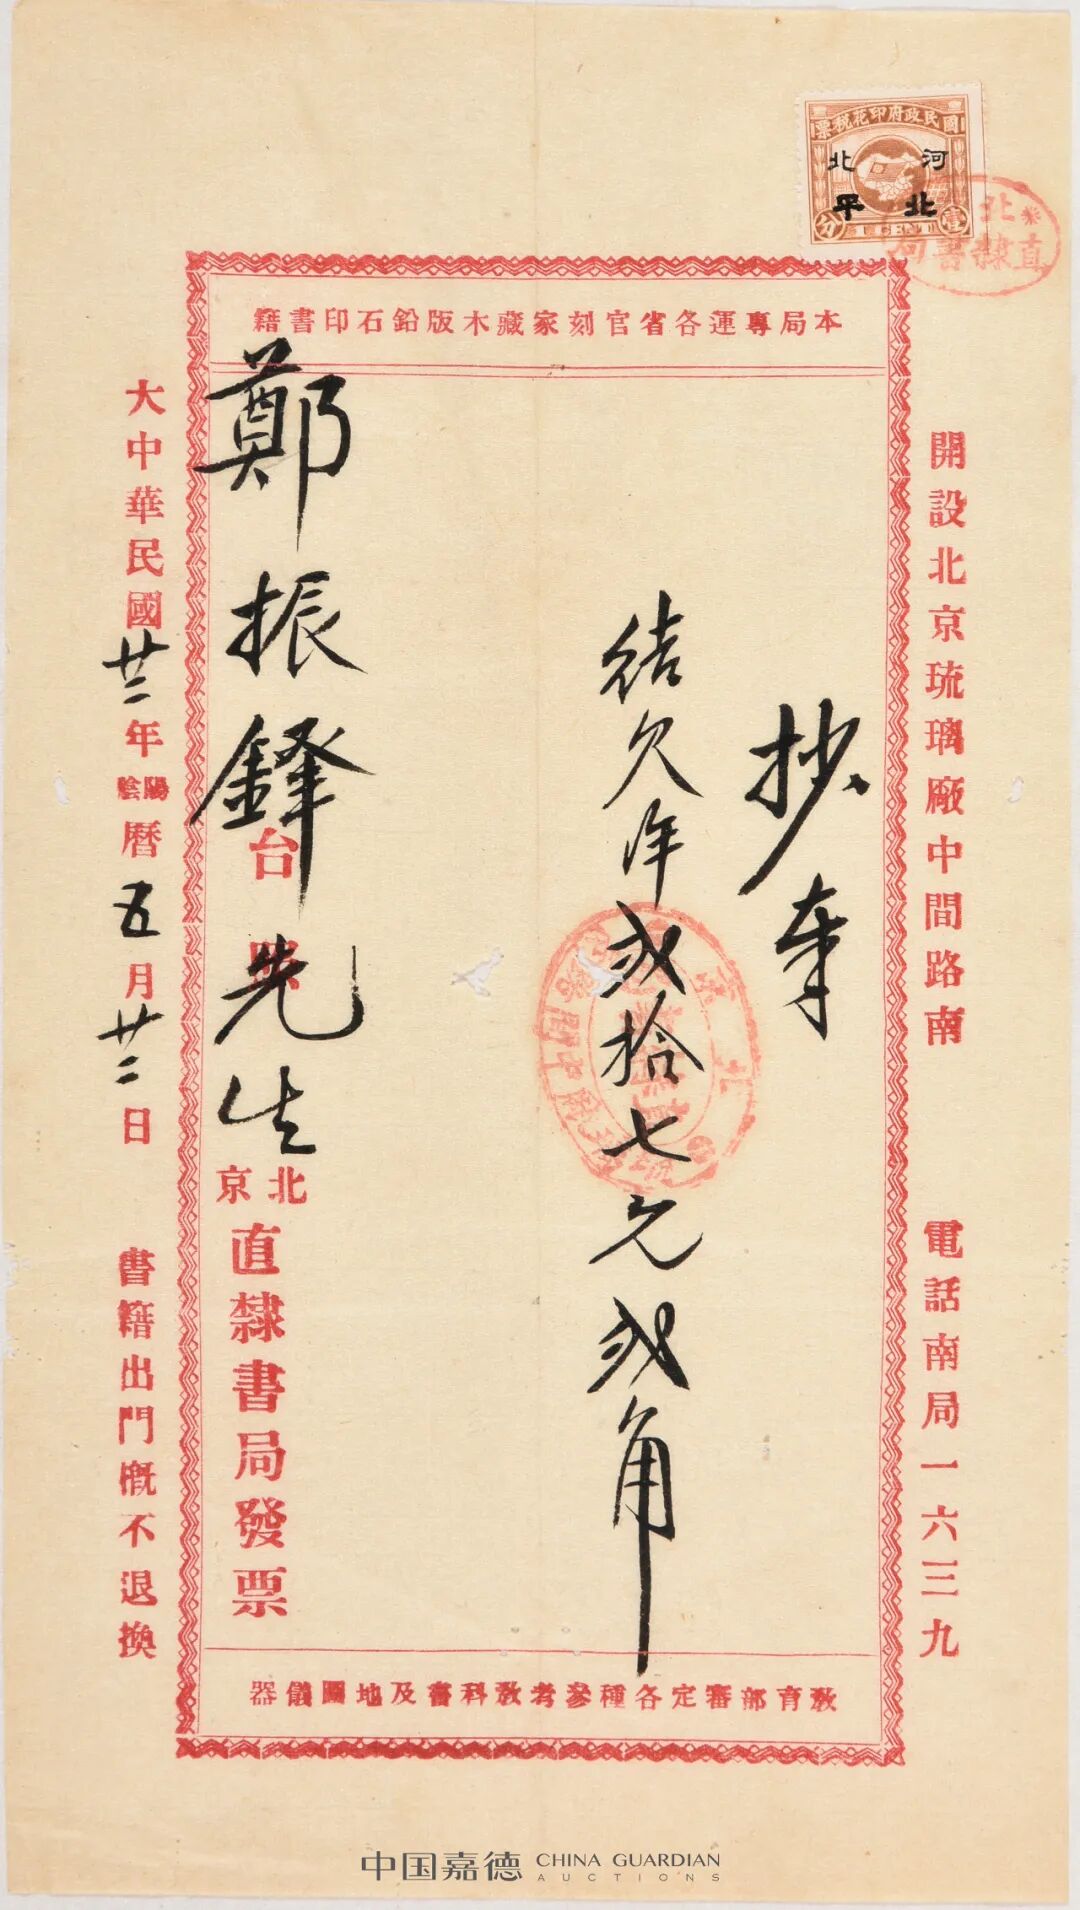 國民政府印花稅票
河北
北平
壹分
1 CENT
直隸書局
本局專運各省官刻家藏木版鉛石印書籍
開設北京琉璃廠中間路南 電話南局一六三九
抄奉
結欠洋貳拾七元貳角
鄭振鐸先生
台照
北京
直隸書局發票
大中華民國廿二年陽陰曆五月廿二日 書籍出門概不退換
教育部審定各種參考教科書及地圖儀器
中国嘉德 CHINA GUARDIAN
AUCTIONS